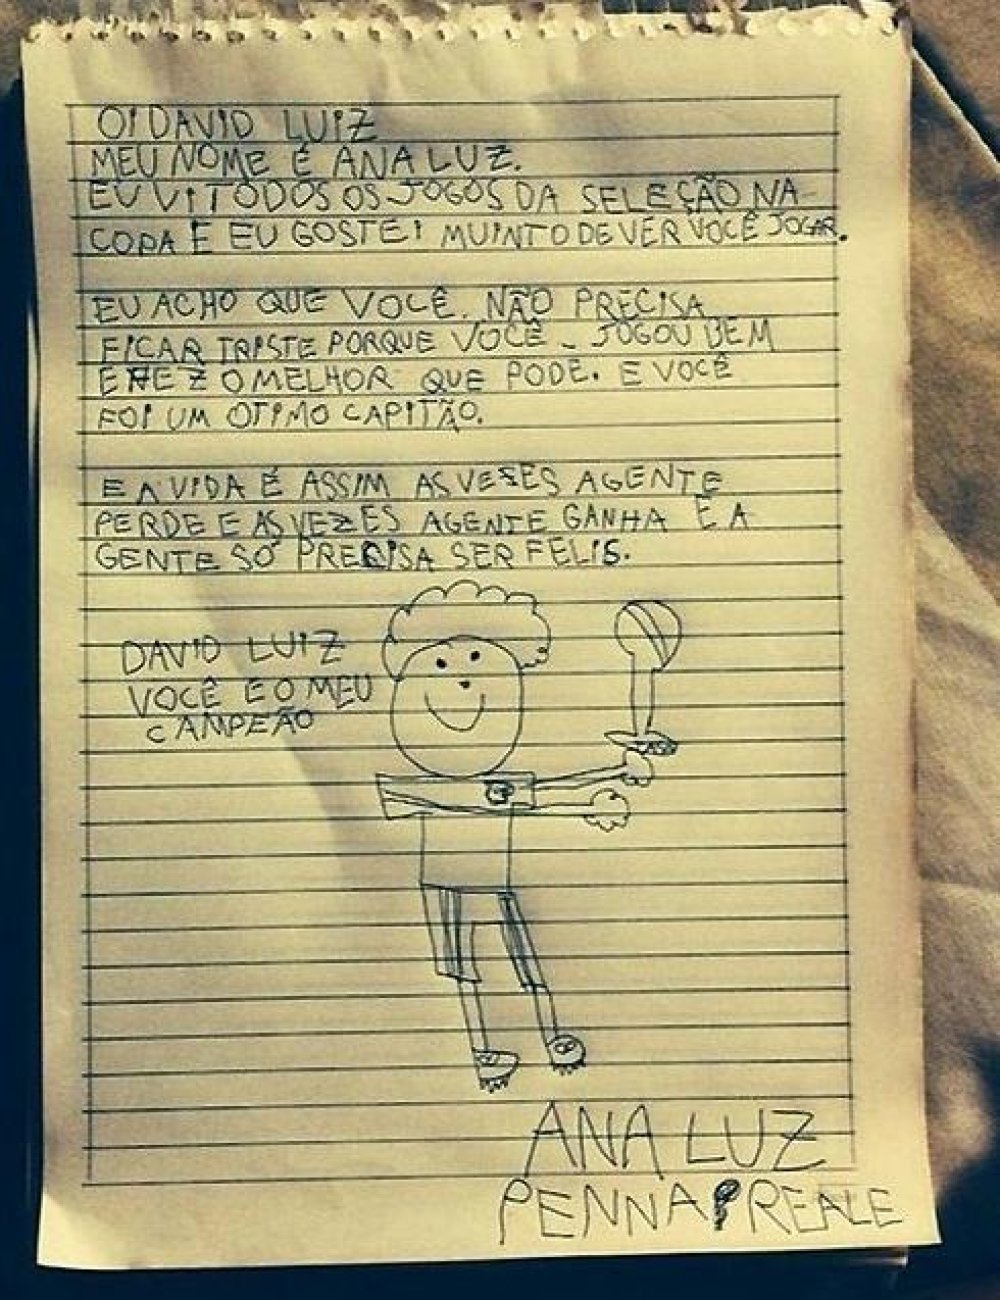 OI DAVID LUIZ
MEU NOME É ANA LUZ.
EU VI TODOS OS JOGOS DA SELEÇÃO NA
COPA E EU GOSTEI MUINTO DE VER VOCÊ JOGAR.
EU ACHO QUE VOCÊ. NÃO PRECISA
FICAR TRISTE PORQUE VOCÊ - JOGOU BEM
E FEZ O MELHOR QUE PODE. E VOCÊ
FOI UM OTIMO CAPITÃO.
E A VIDA É ASSIM AS VEZES AGENTE
PERDE E AS VEZES AGENTE GANHA E A
GENTE SÓ PRECISA SER FELIS.
DAVID LUIZ
VOCÊ E O MEU
CAMPEÃO
ANA LUZ
PENNA REALE